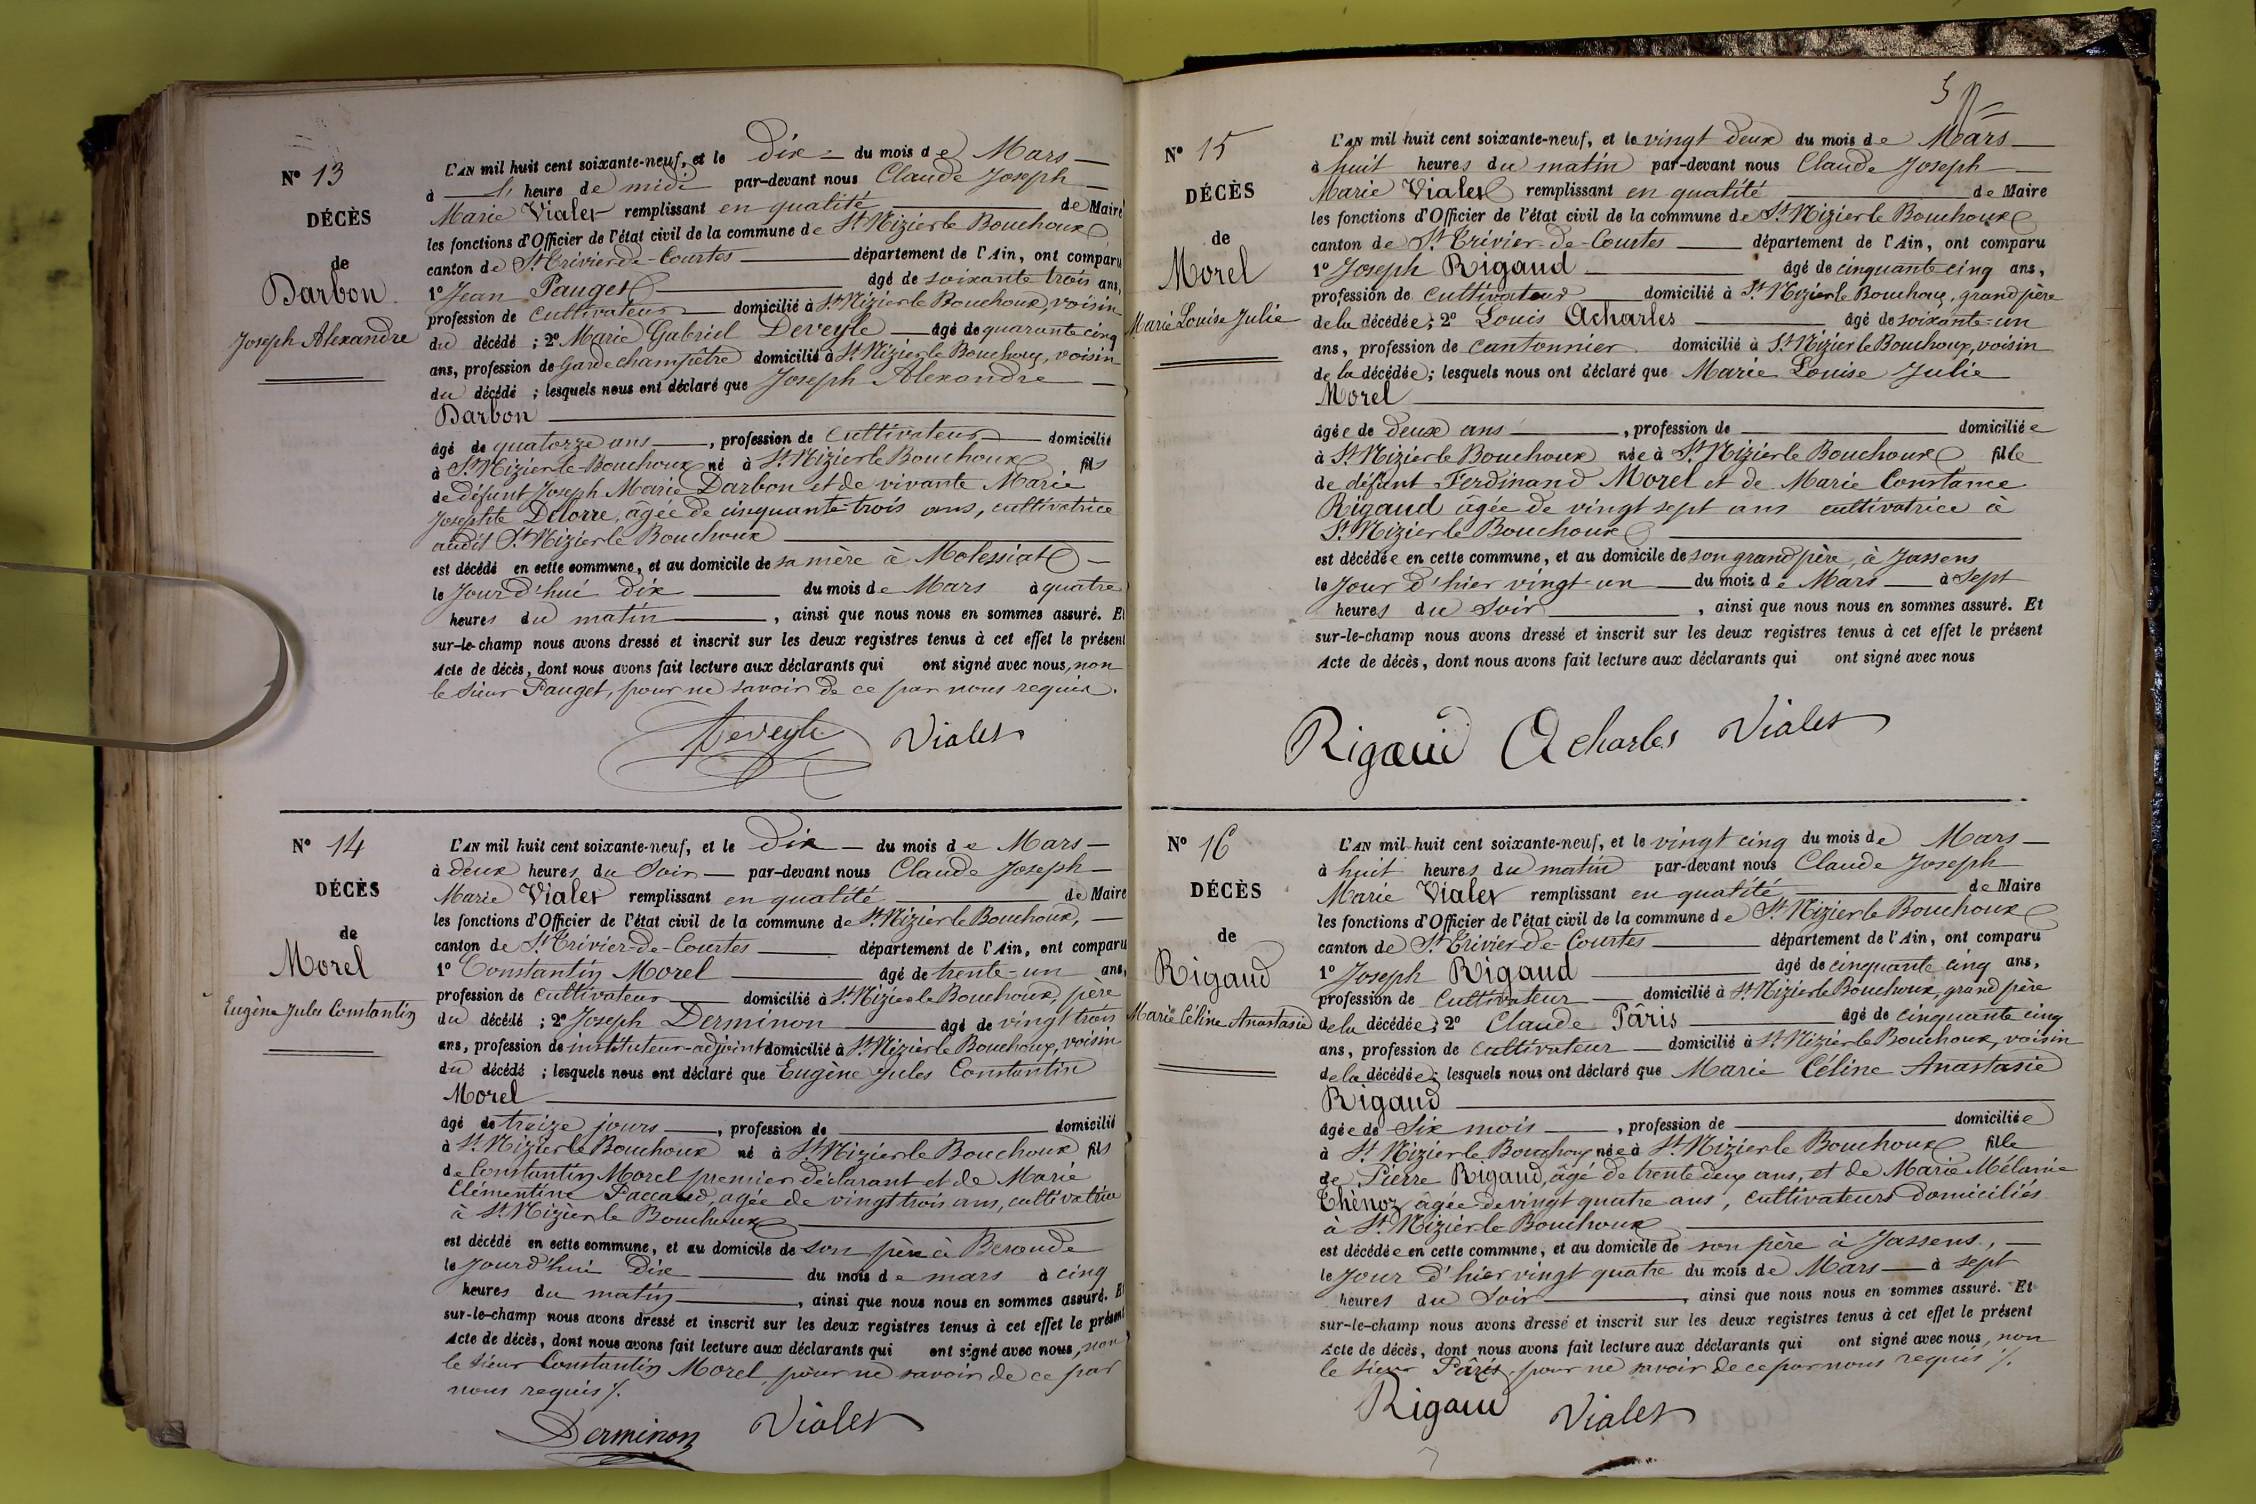 N° 13
DÉCÈS
de
Darbon
Joseph Alexandre
L'AN mil huit cent soixante-neuf, et le dix du mois de Mars
à heure de midi par-devant nous Claude Joseph
Marie Vialet remplissant en qualité de Maire
les fonctions d'Officier de l'état civil de la commune de St Nizier le Bouchoux
canton de St Trivier-de-Courtes département de l'Ain, ont comparu
1° Jean Pauget âgé de soixante trois ans,
profession de cultivateur domicilié à St Nizier le Bouchoux, voisin
du décédé ; 2° Marie Gabriel Deveyle âgé de quarante cinq
ans, profession de Garde champêtre domicilié à St Nizier le Bouchoux, voisin
du décédé ; lesquels nous ont déclaré que Joseph Alexandre
Darbon
âgé de quatorze ans, profession de cultivateur domicilié
à St Nizier-le-Bouchoux né à St Nizier le Bouchoux fils
de défunt Joseph Marie Darbon et de vivante Marie
Josephte Delorre, agée de cinquante-trois ans, cultivatrice
audit St Nizier le Bouchoux
est décédé en cette commune, et au domicile de sa mère à Molessiat
le Jourd'hui dix du mois de Mars à quatre
heures du matin, ainsi que nous nous en sommes assuré. Et
sur-le-champ nous avons dressé et inscrit sur les deux registres tenus à cet effet le présent
Acte de décès, dont nous avons fait lecture aux déclarants qui ont signé avec nous, non
le Sieur Pauget, pour ne savoir de ce par nous requis.
Deveyle Vialet
N° 14
DÉCÈS
de
Morel
Eugène Jules Constantin
L'AN mil huit cent soixante-neuf, et le dix du mois de Mars
à deux heures du Soir par-devant nous Claude Joseph
Marie Vialet remplissant en qualité de Maire
les fonctions d'Officier de l'état civil de la commune de St Nizier le Bouchoux,
canton de St Trivier-de-Courtes département de l'Ain, ont comparu
1° Constantin Morel âgé de trente-un ans,
profession de cultivateur domicilié à St Nizier le Bouchoux, père
du décédé ; 2° Joseph Derminon âgé de vingt trois
ans, profession de instituteur-adjoint domicilié à St Nizier le Bouchoux, voisin
du décédé ; lesquels nous ont déclaré que Eugène Jules Constantin
Morel
âgé de treize jours, profession de domicilié
à St Nizier le Bouchoux né à St Nizier le Bouchoux fils
de Constantin Morel premier déclarant et de Marie
Clémentine Paccaud, agée de vingt trois ans, cultivatrice
à St Nizier le Bouchoux
est décédé en cette commune, et au domicile de son père à Beroude
le Jourd'hui dix du mois de mars à cinq
heures du matin, ainsi que nous nous en sommes assuré. Et
sur-le-champ nous avons dressé et inscrit sur les deux registres tenus à cet effet le présent
Acte de décès, dont nous avons fait lecture aux déclarants qui ont signé avec nous, non
le sieur Constantin Morel, pour ne savoir de ce par
nous requis ./.
Derminon Vialet
5
N° 15
DÉCÈS
de
Morel
Marie Louise Julie
L'AN mil huit cent soixante-neuf, et le vingt deux du mois de Mars
à huit heures du matin par-devant nous Claude Joseph
Marie Vialet remplissant en qualité de Maire
les fonctions d'Officier de l'état civil de la commune de St Nizier le Bouchoux
canton de St Trivier-de-Courtes département de l'Ain, ont comparu
1° Joseph Rigaud âgé de cinquante cinq ans,
profession de cultivateur domicilié à St Nizier le Bouchoux, grand père
de la décédée ; 2° Louis Acharles âgé de soixante-un
ans, profession de cantonnier domicilié à St Nizier le Bouchoux, voisin
de la décédée ; lesquels nous ont déclaré que Marie Louise Julie
Morel
âgée de deux ans, profession de domiciliée
à St Nizier le Bouchoux née à St Nizier le Bouchoux fille
de défunt Ferdinand Morel et de Marie Constance
Rigaud âgée de vingt sept ans cultivatrice à
St Nizier le Bouchoux
est décédée en cette commune, et au domicile de son grand père, à Jassens
le Jour d'hier vingt-un du mois de Mars à Sept
heures du Soir, ainsi que nous nous en sommes assuré. Et
sur-le-champ nous avons dressé et inscrit sur les deux registres tenus à cet effet le présent
Acte de décès, dont nous avons fait lecture aux déclarants qui ont signé avec nous
Rigaud Acharles Vialet
N° 16
DÉCÈS
de
Rigaud
Marie Céline Anastasie
L'AN mil huit cent soixante-neuf, et le vingt cinq du mois de Mars
à huit heures du matin par-devant nous Claude Joseph
Marie Vialet remplissant en qualité de Maire
les fonctions d'Officier de l'état civil de la commune de St Nizier le Bouchoux
canton de St Trivier-de-Courtes département de l'Ain, ont comparu
1° Joseph Rigaud âgé de cinquante cinq ans,
profession de cultivateur domicilié à St Nizier le Bouchoux, grand père
de la décédée ; 2° Claude Pâris âgé de cinquante cinq
ans, profession de cultivateur domicilié à St Nizier le Bouchoux, voisin
de la décédée ; lesquels nous ont déclaré que Marie Céline Anastasie
Rigaud
âgée de Six mois, profession de domiciliée
à St Nizier le Bouchoux née à St Nizier le Bouchoux fille
de Pierre Rigaud, âgé de trente deux ans, et de Marie Mélanie
Thènoz âgée de vingt quatre ans, cultivateurs domiciliés
à St Nizier le Bouchoux
est décédée en cette commune, et au domicile de son père à Jassens,
le Jour d'hier vingt quatre du mois de Mars à sept
heures du Soir, ainsi que nous nous en sommes assuré. Et
sur-le-champ nous avons dressé et inscrit sur les deux registres tenus à cet effet le présent
Acte de décès, dont nous avons fait lecture aux déclarants qui ont signé avec nous, non
le Sieur Pâris, pour ne savoir de ce par nous requis ./.
Rigaud Vialet